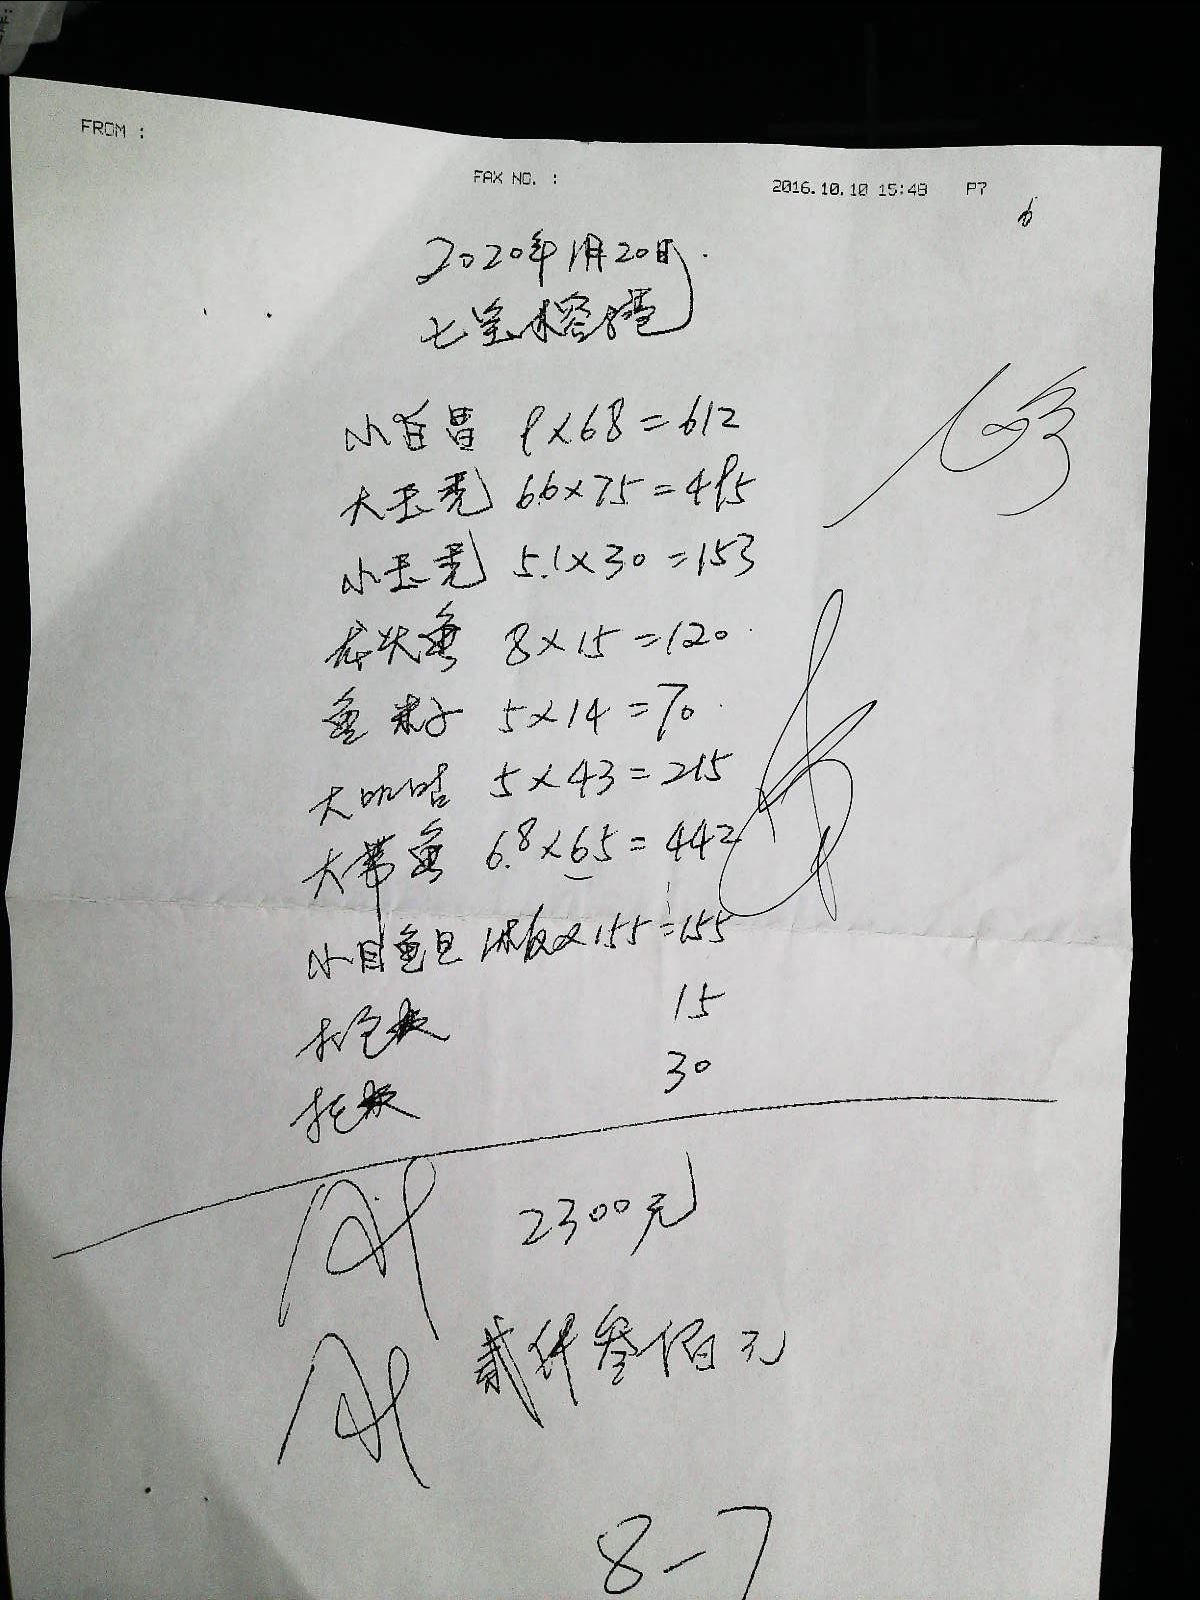 FROM :
FAX NO. :
2016.10.10 15:49 P7
2020年1月20日
七宝
小 9×68=612
大玉秃 6.6×75=495
小玉秃 5.1×30=153
龙头鱼 8×15=120
鱼米子 5×14=70
大 5×43=215
大带鱼 6.8×65=442
小目鱼旦 1板×155=155
打包 15
托 30
2300元
贰仟叁佰元
8-7